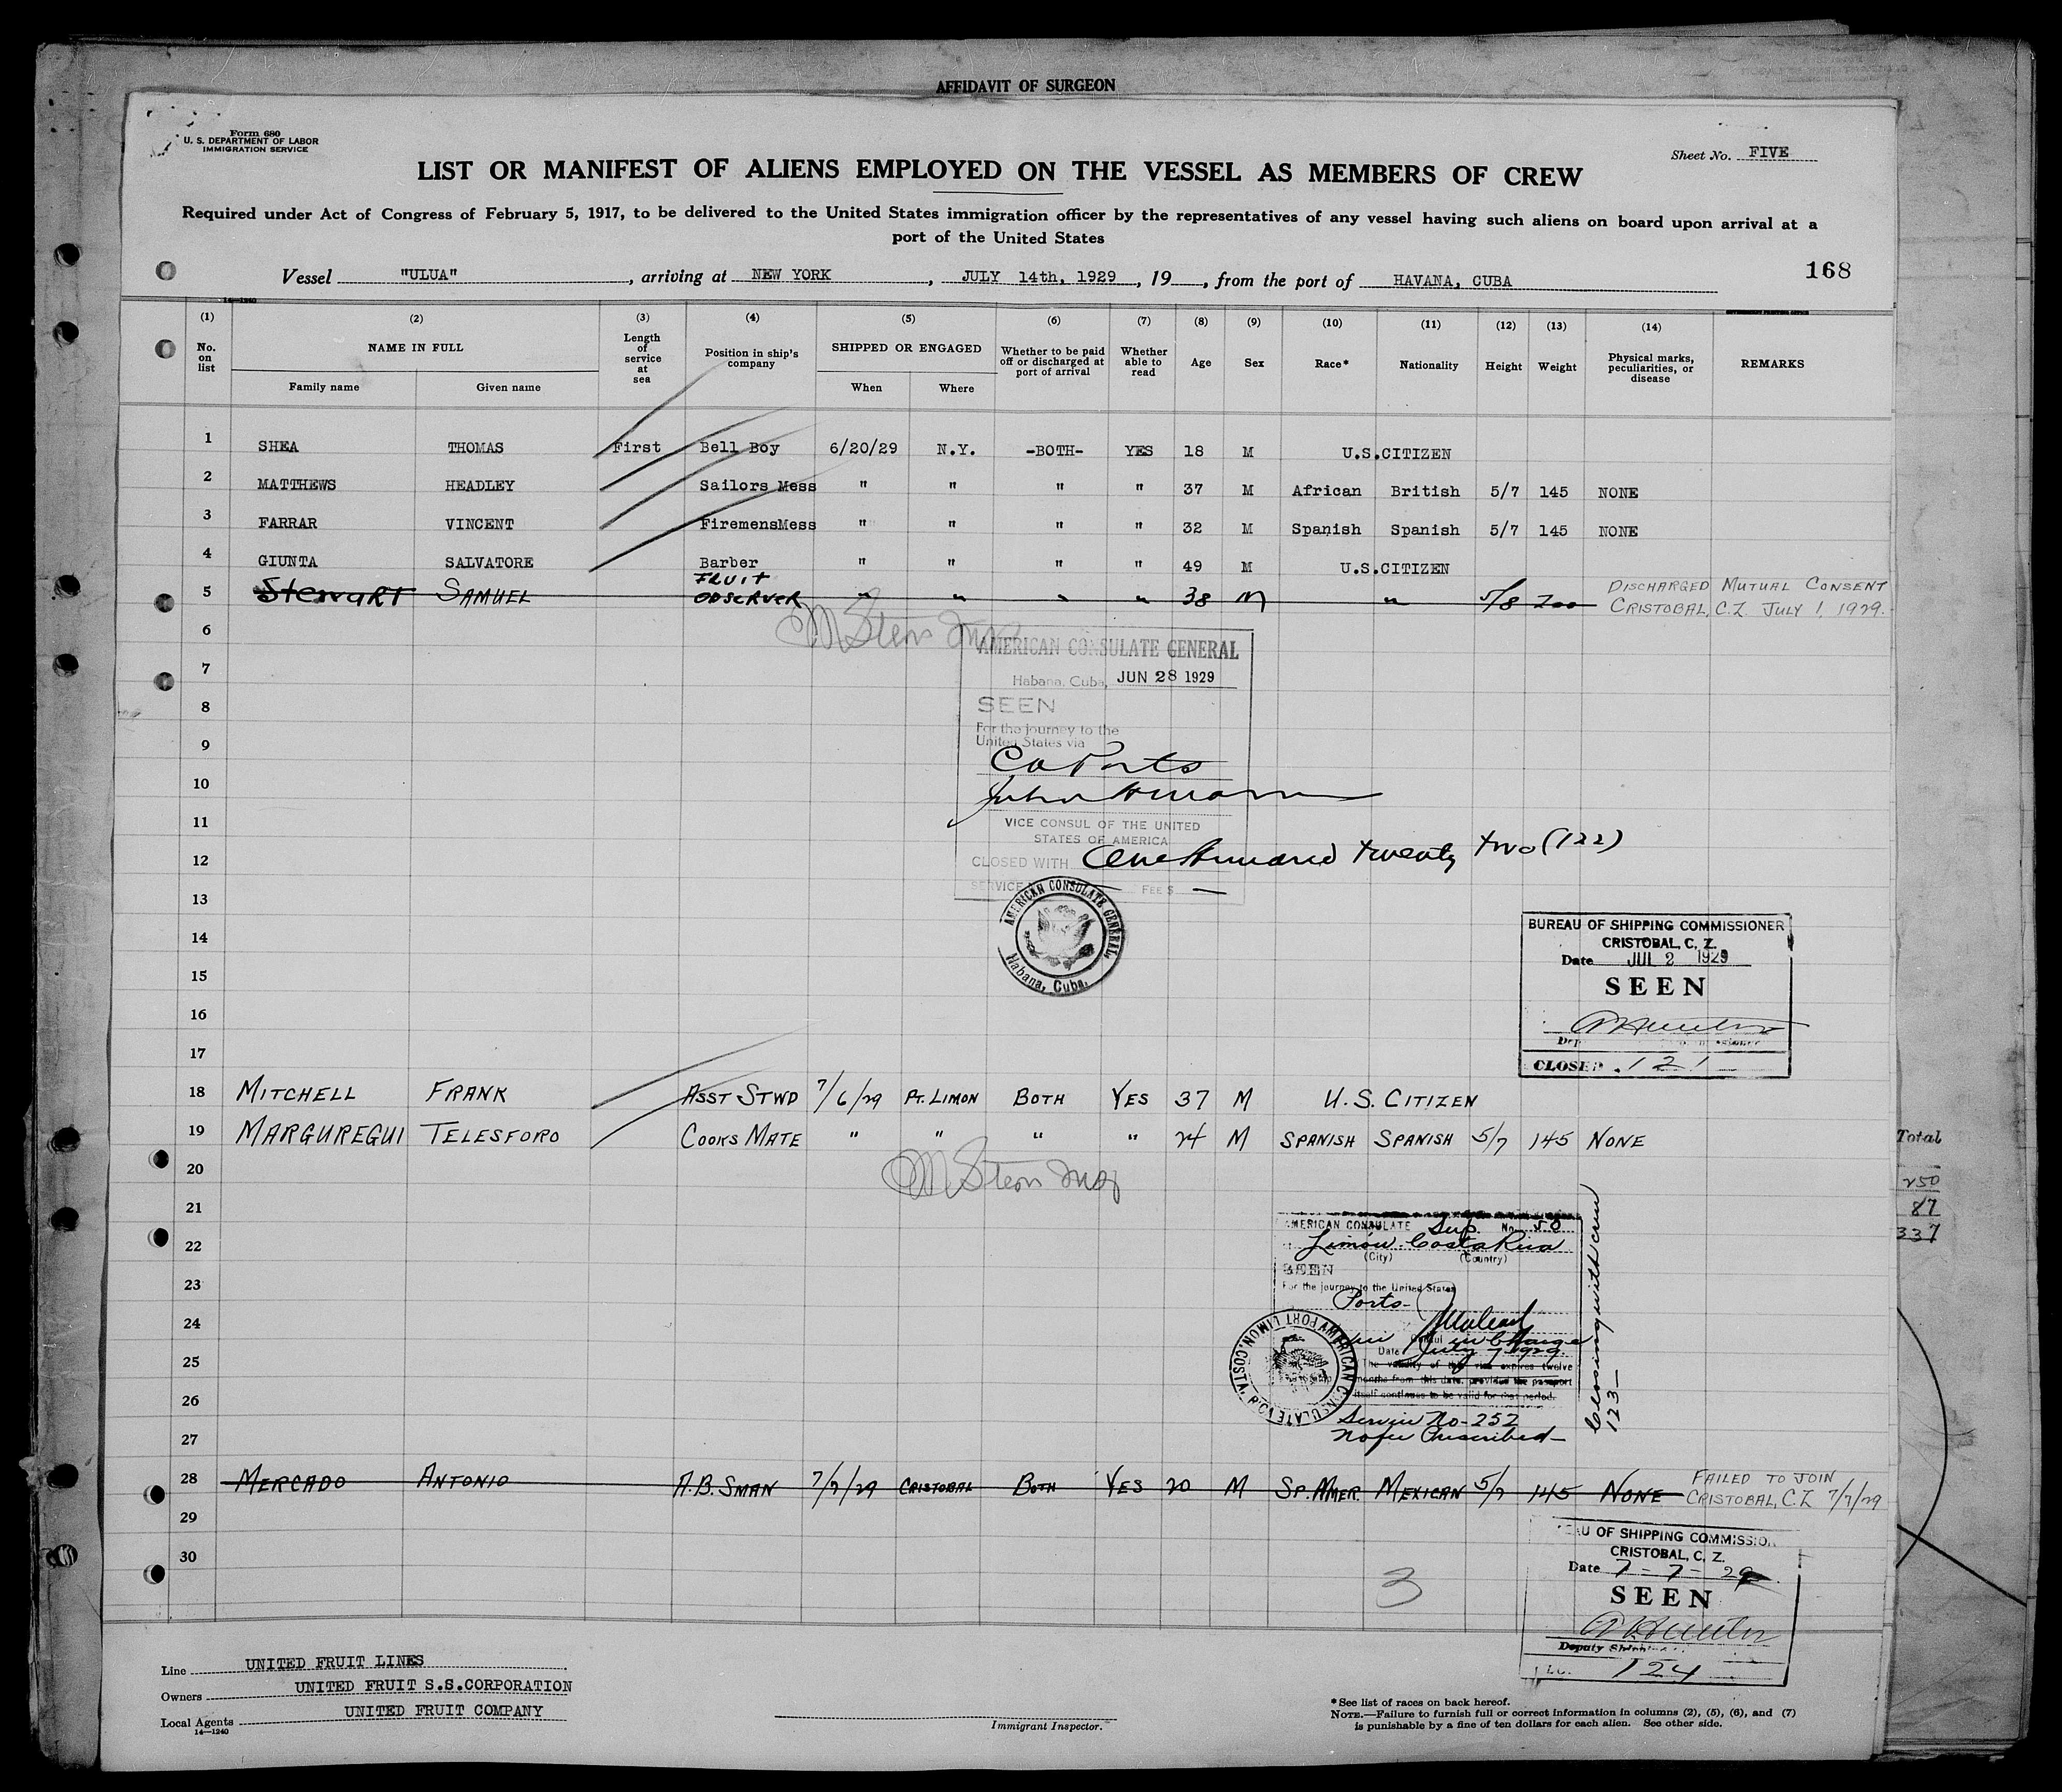 AFFIDAVIT OF SURGEON
Form 680
U. S. DEPARTMENT OF LABOR
IMMIGRATION SERVICE
Sheet No. FIVE
LIST OR MANIFEST OF ALIENS EMPLOYED ON THE VESSEL AS MEMBERS OF CREW
Required under Act of Congress of February 5, 1917, to be delivered to the United States immigration officer by the representatives of any vessel having such aliens on board upon arrival at a
port of the United States
Vessel "ULUA", arriving at NEW YORK, JULY 14th, 1929, 19, from the port of HAVANA, CUBA
168
14-1240
(1) (2) (3) (4) (5) (6) (7) (8) (9) (10) (11) (12) (13) (14)
No. on list
NAME IN FULL
Family name
Given name
Length of service at sea
Position in ship's company
SHIPPED OR ENGAGED
When
Where
Whether to be paid off or discharged at port of arrival
Whether able to read
Age
Sex
Race*
Nationality
Height
Weight
Physical marks, peculiarities, or disease
REMARKS
1 SHEA THOMAS First Bell Boy 6/20/29 N.Y. -BOTH- YES 18 M U.S.CITIZEN
2 MATTHEWS HEADLEY Sailors Mess " " " " 37 M African British 5/7 145 NONE
3 FARRAR VINCENT FiremensMess " " " " 32 M Spanish Spanish 5/7 145 NONE
4 GIUNTA SALVATORE Barber " " " " 49 M U.S.CITIZEN
5 Stewart SAMUEL FRUIT OBSERVER " " " " 38 M " 5/8 200 DISCHARGED MUTUAL CONSENT CRISTOBAL, C.Z. JULY 1, 1929.
6
M Stern Insp
AMERICAN CONSULATE GENERAL
7
Habana, Cuba, JUN 28 1929
8
SEEN
For the journey to the
United States via
9
10
11
VICE CONSUL OF THE UNITED
STATES OF AMERICA
12
CLOSED WITH One Hundred twenty two (122)
SERVICE FEE $ —
13
AMERICAN CONSULATE GENERAL. Habana, Cuba.
14
15
16
17
BUREAU OF SHIPPING COMMISSIONER
CRISTOBAL, C. Z.
Date JUL 2 1929
SEEN
CLOSED 121
18 MITCHELL FRANK ASST STWD 7/6/29 PT. LIMON BOTH YES 37 M U.S. CITIZEN
19 MARGUREGUI TELESFORO COOKS MATE " " " " 24 M SPANISH SPANISH 5/7 145 NONE
20
M Stern Insp
21
22
23
24
25
26
27
AMERICAN CONSULATE Sup. No. 50
Limón Costa Rica
(City) (Country)
SEEN
For the journey to the United States
Ports-
in Charge
Date July 7 1929
The validity of this visa expires twelve
months from this date, provided the passport
itself continues to be valid for that period.
Service No-252
No fee Prescribed-
Closing with crew
123-
AMERICAN CONSULATE PORT LIMON, COSTA RICA
28 MERCADO ANTONIO A.B. SMAN 7/7/29 CRISTOBAL BOTH YES 20 M SP. AMER. MEXICAN 5/7 145 NONE FAILED TO JOIN CRISTOBAL, C.Z. 7/7/29
29
30
3
CRISTOBAL, C. Z.
Date 7-7-29
SEEN
Deputy
124
Total
250
87
337
Line UNITED FRUIT LINES
Owners UNITED FRUIT S.S.CORPORATION
Local Agents UNITED FRUIT COMPANY
14-1240
Immigrant Inspector.
*See list of races on back hereof.
NOTE.—Failure to furnish full or correct information in columns (2), (5), (6), and (7)
is punishable by a fine of ten dollars for each alien. See other side.